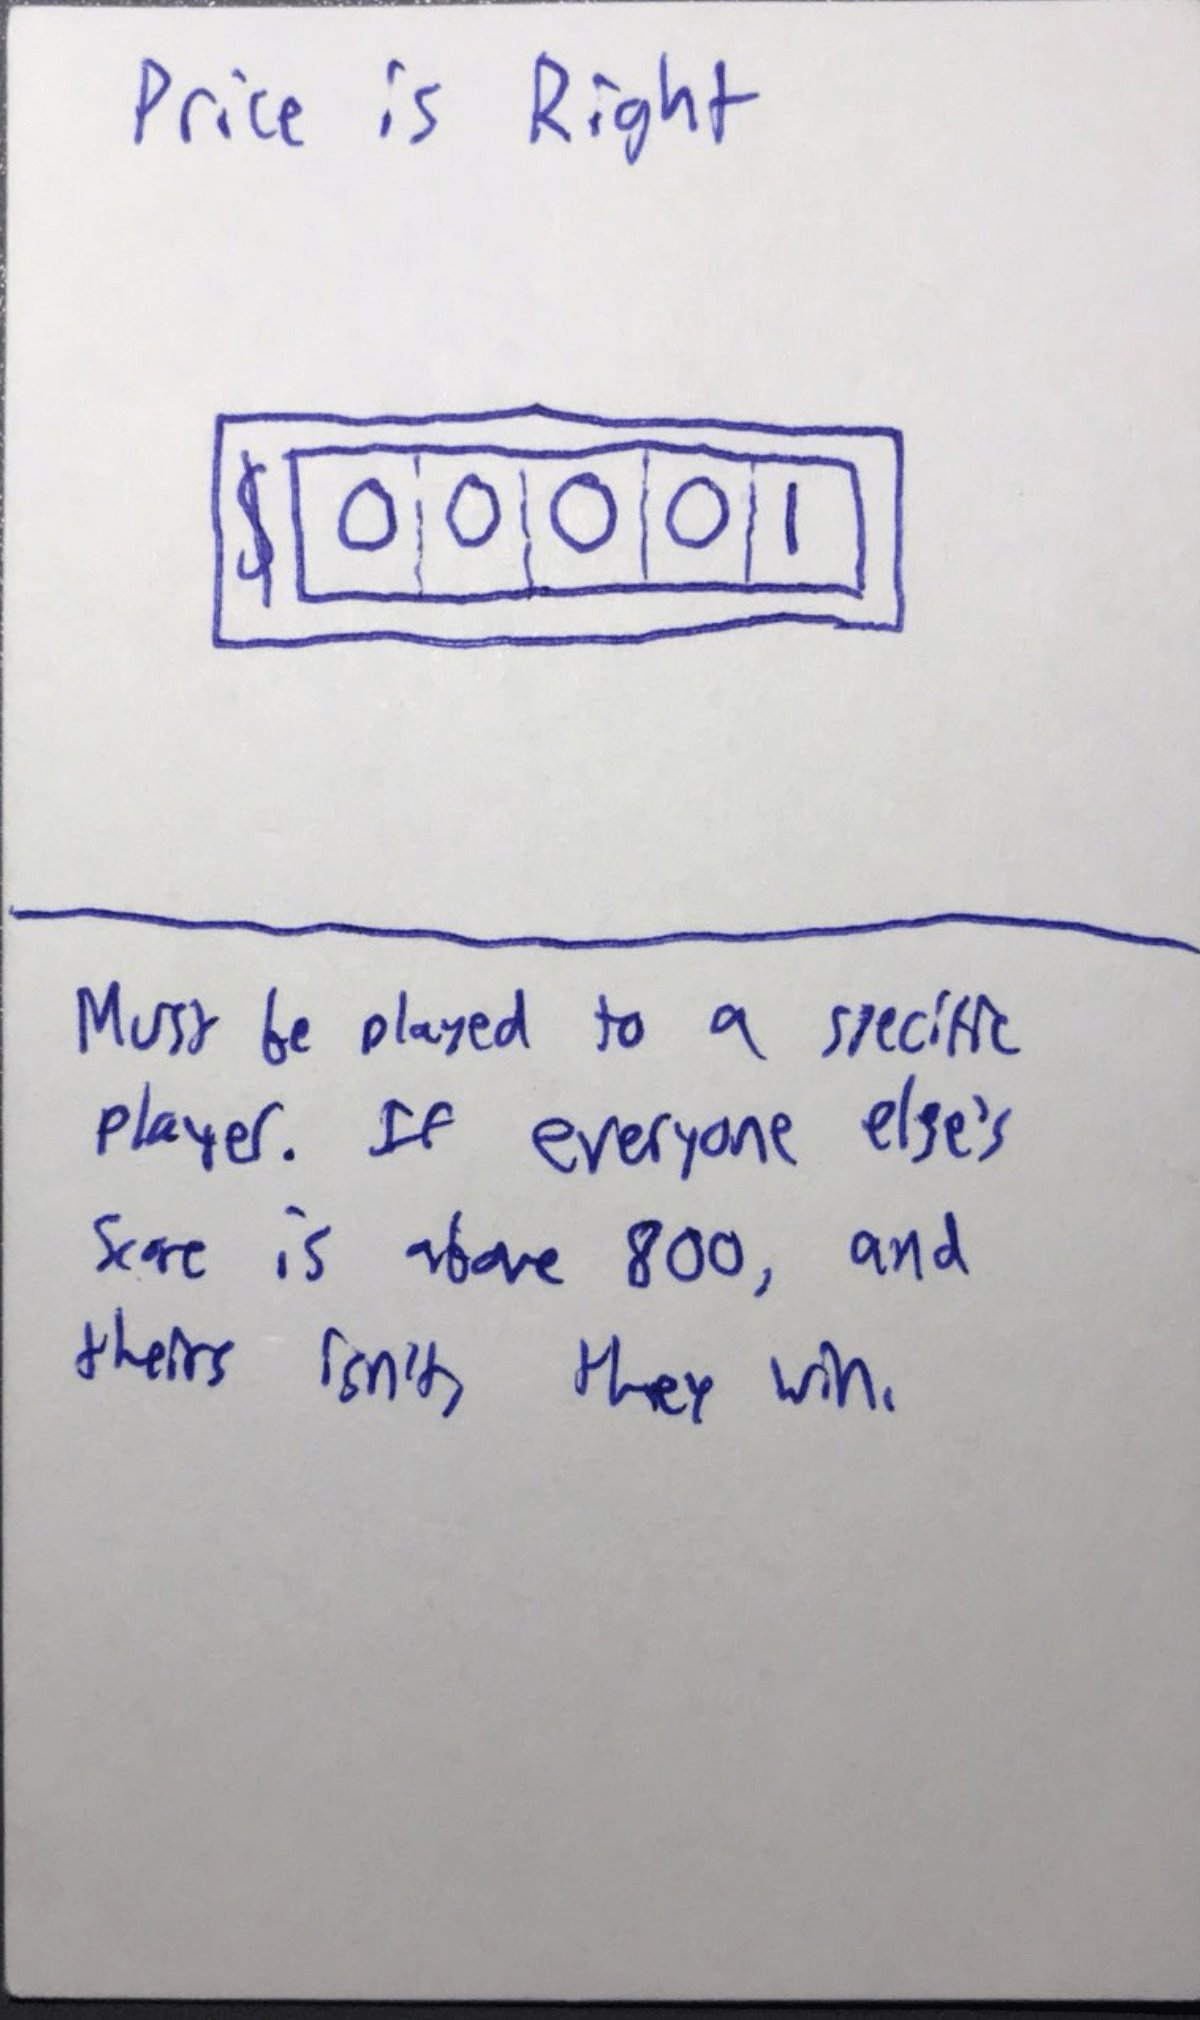 Price is Right
$ 00001
Must be played to a specific
player. If everyone else's
score is above 800, and
theirs isn't, they win.